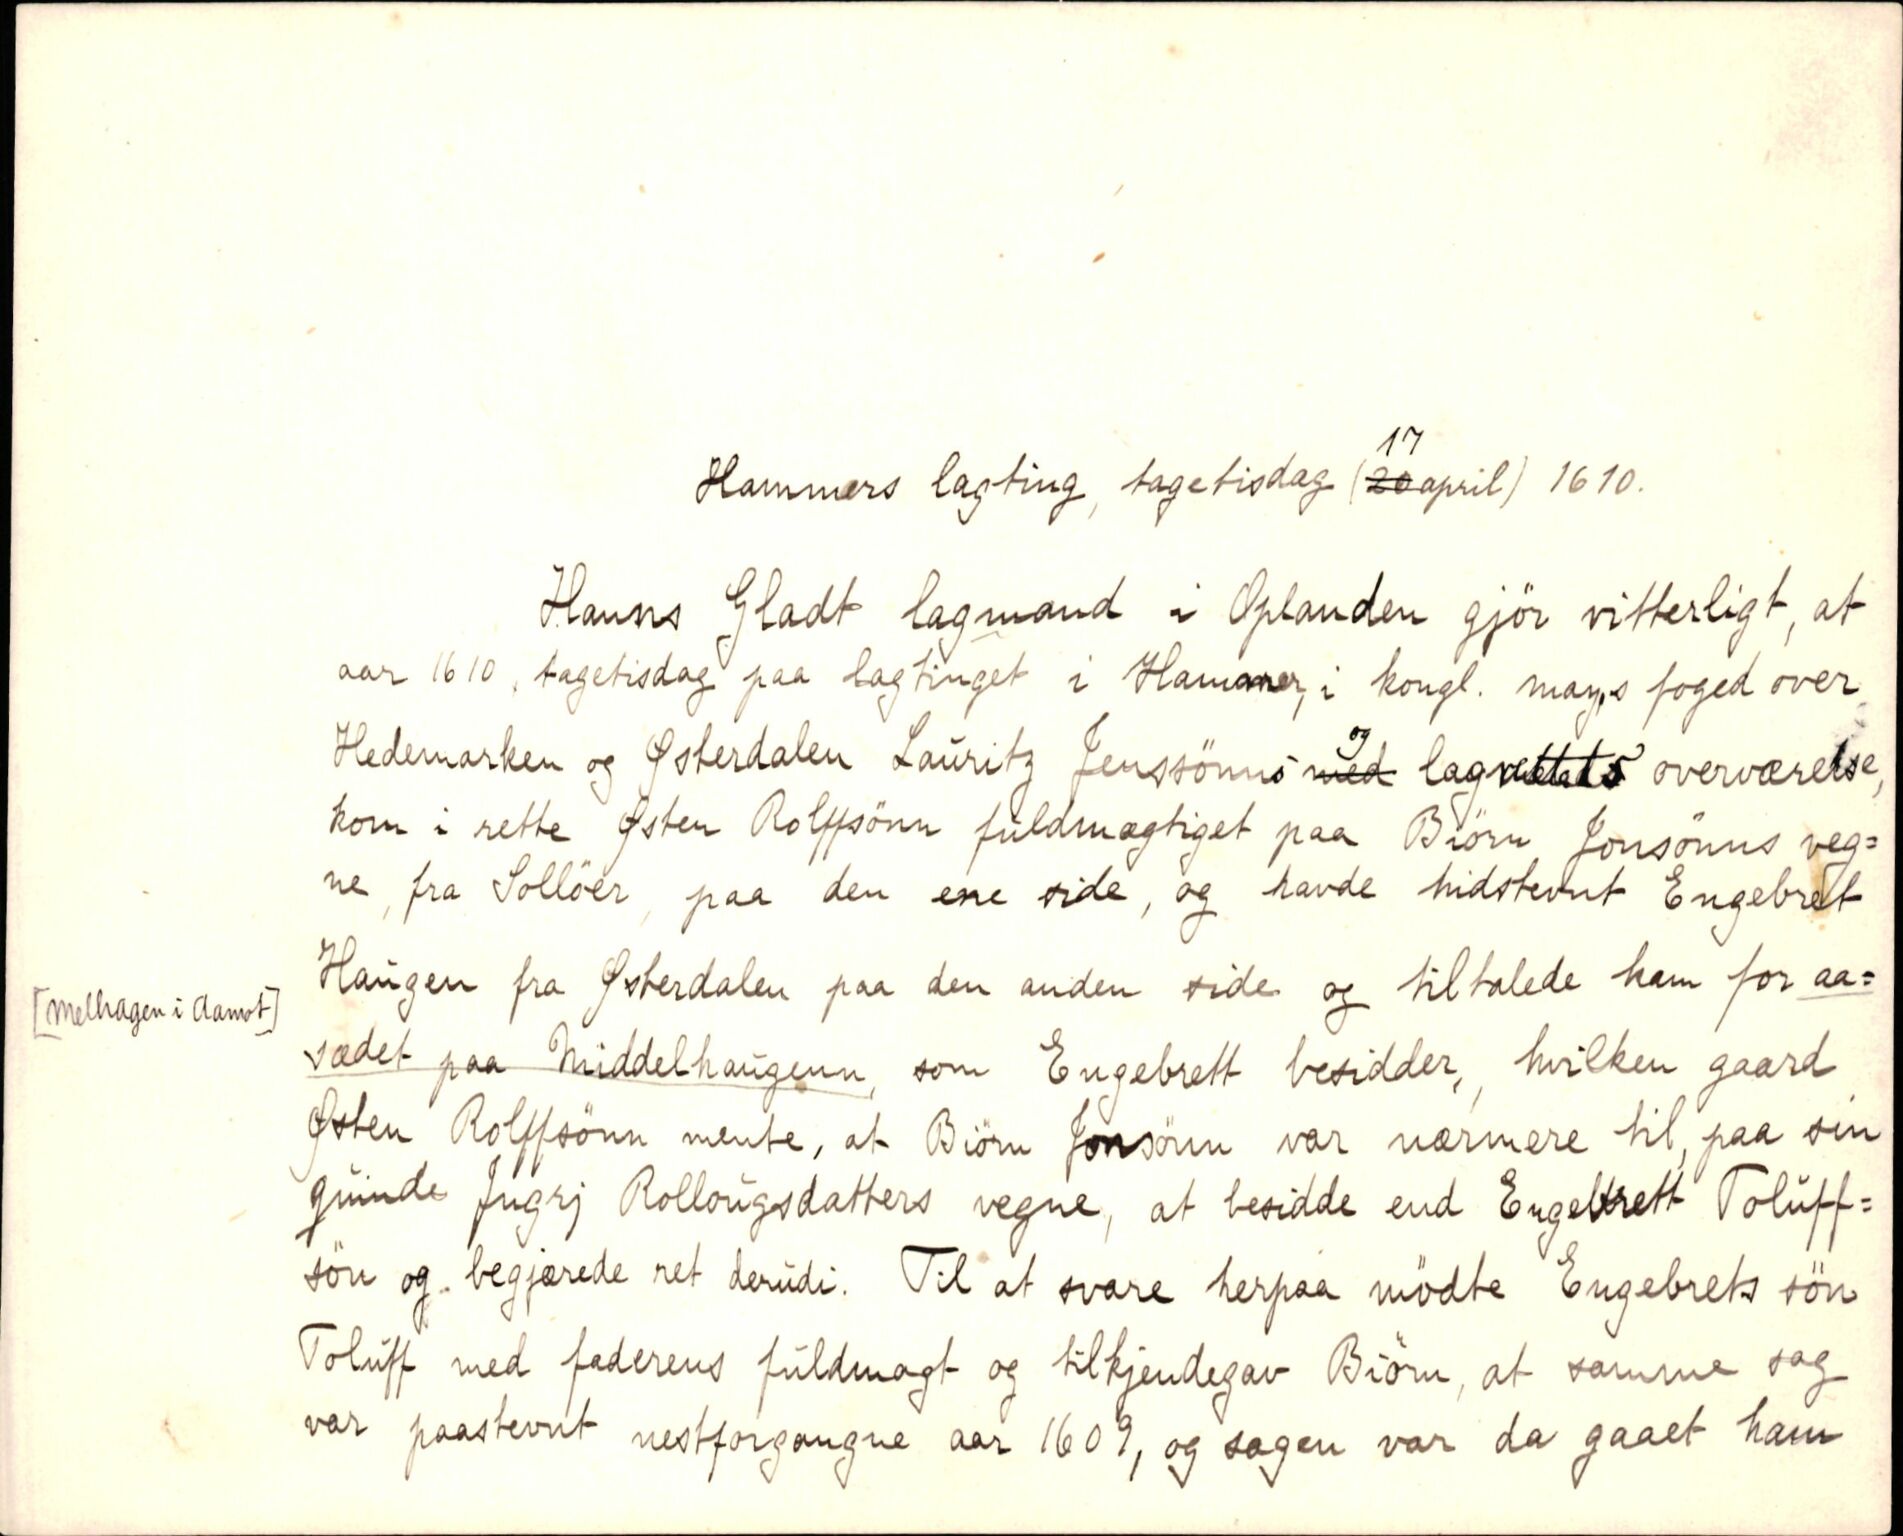 Hammers lagting, tagetisdag (~~20~~ 17 april) 1610.
Hanns Gladt lagmand i Oplanden gjör vitterligt, at
aar 1610, tagetisdag paa lagtinget i Hammer, i kongl. may.s foged over
Hedemarken og Østerdalen Lauritz Jenssönns ~~med~~ og lagrettets overværelse,
kom i rette Østen Rolffsönn fuldmægtiget paa Biörn Jonsönns veg=
ne, fra Sollöer, paa den ene side, og havde hidstevnt Engebret
Haugen fra Østerdalen paa den anden side og tiltalede ham for aa=
[Melhagen i Aamot]
sædet paa Middelhaugenn, som Engebrett besidder, hvilken gaard
Østen Rolffsönn mente, at Biörn Jonsönn var nærmere til, paa sin
quinde Jngrj Rollougsdatters vegne, at besidde end Engebrett Toluff=
sön og begjærede ret derudi. Til at svare herpaa mödte Engebrets sön
Toluff med faderens fuldmagt og tilkjendegav Biörn, at samme sag
var paastevnt nestforgangne aar 1609, og sagen var da gaaet ham